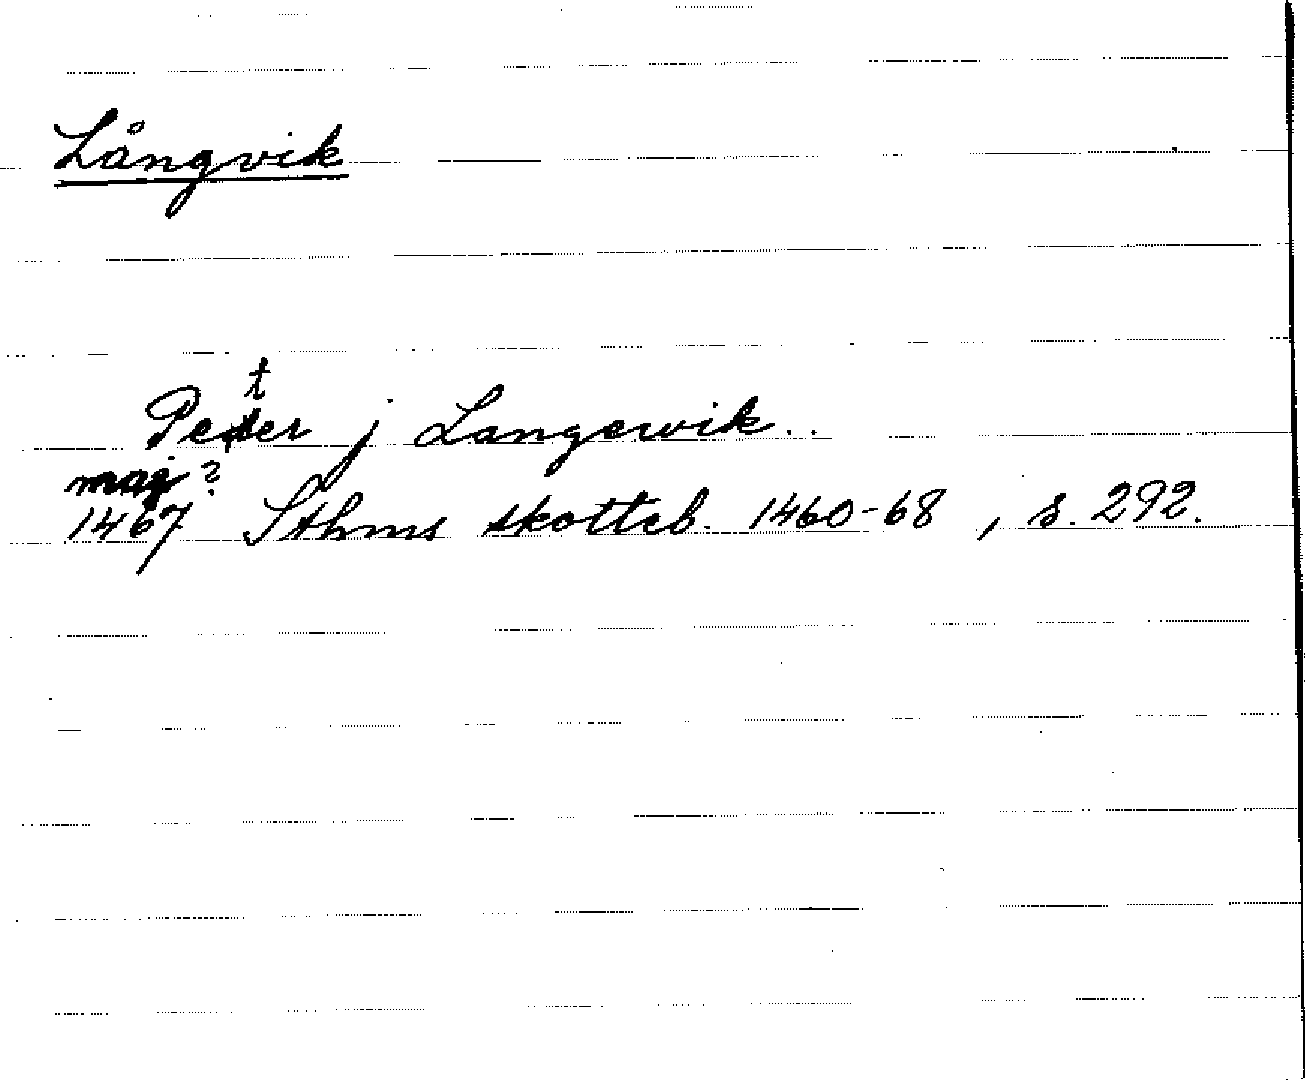 Långvik
Peter j Langewik..
maj?
1467 Sthms skotteb. 1460-68, s. 292.